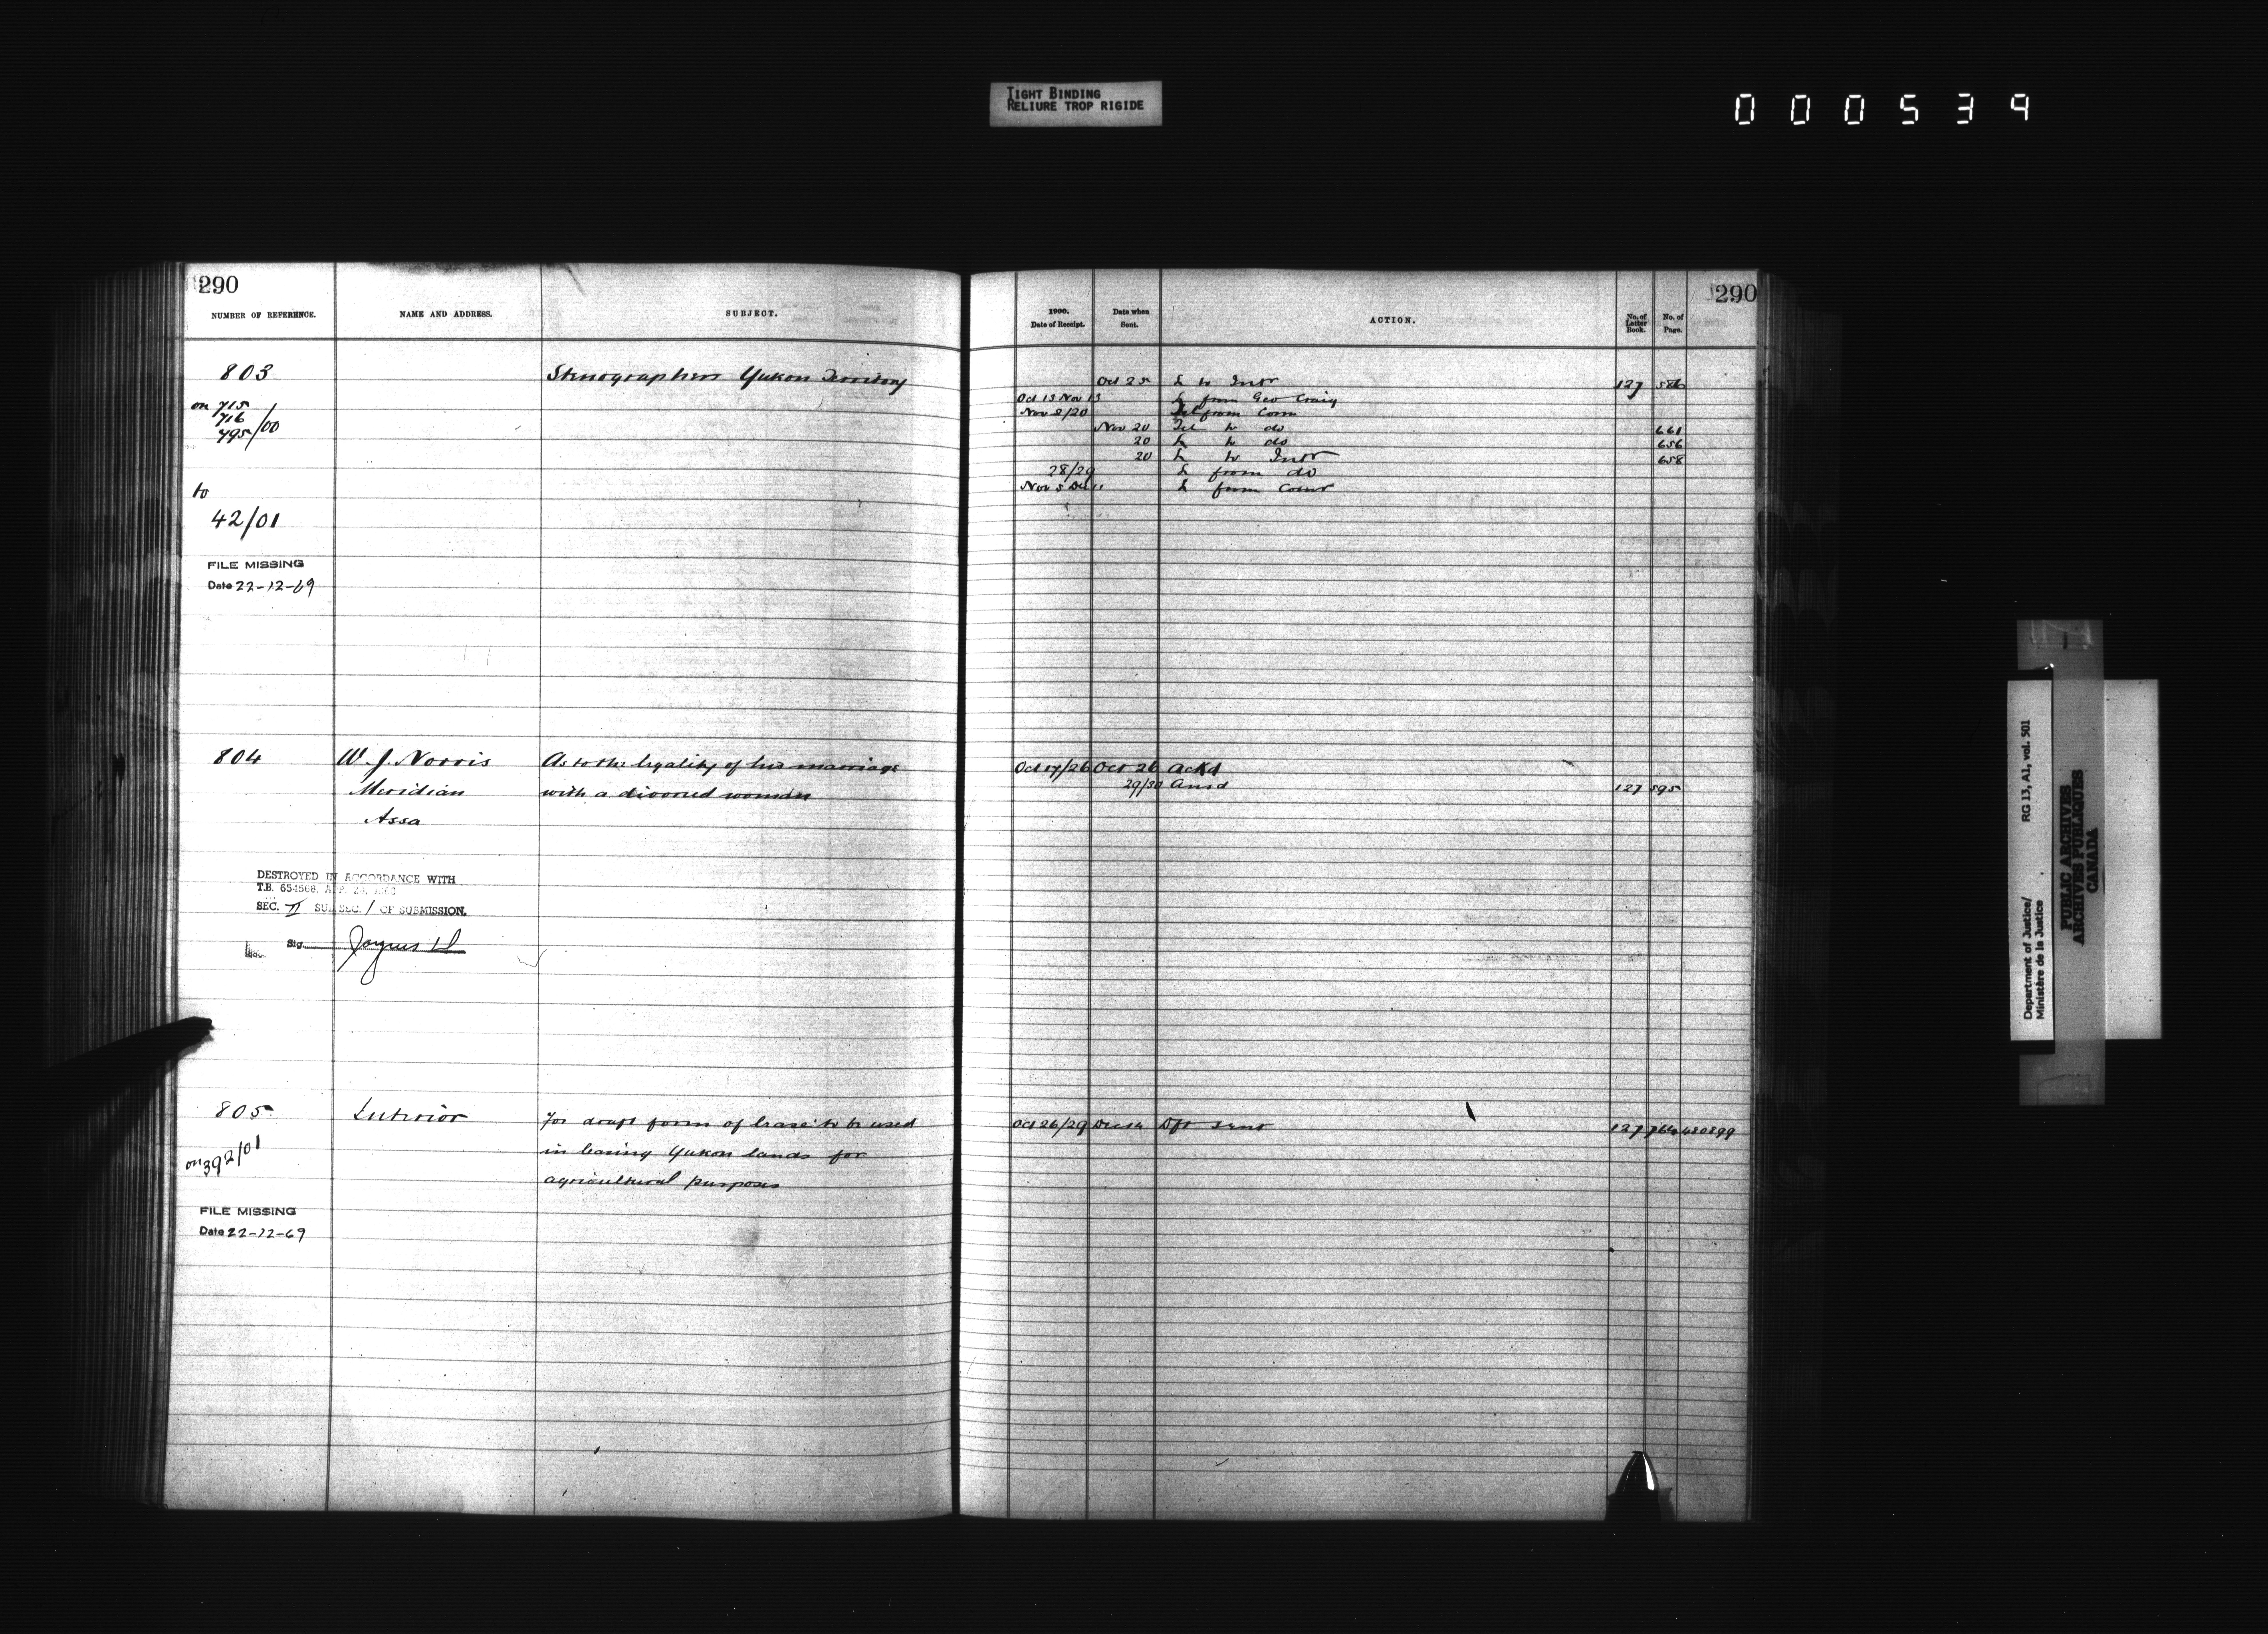 TIGHT BINDING
RELIURE TROP RIGIDE
000539
290
NUMBER OF REFERENCE. NAME AND ADDRESS. SUBJECT.
1900. Date of Receipt. Date when Sent. ACTION. No. of Letter Book. No. of Page.
290
803 Stenographers Yukon Territory
Oct 25 L to Intr 127 586
on 715
716
795/00
Oct 13 Nov 13 L from Geo Craig
Nov 8/20 Tel from Com
Nov 20 Tel to do 661
20 L to do 656
20 L to Intr 658
28/29 L from do
Nov 5 Dec 11 L from Comr
to
42/01
FILE MISSING
Date 22-12-69
804 W. J. Norris As to the legality of his marriage
Meridian with a divorced woman
Assa
Oct 17/26 Oct 26 Ackd
29/30 Ansd 127 595
DESTROYED IN ACCORDANCE WITH
T.B. 654568, APR. 24,
SEC. II SUB SEC. 1 OF SUBMISSION.
Sig.
805 Interior For draft form of lease to be used
on 392/01 in leasing Yukon lands for
agricultural purposes
Oct 26/29 Dft sent 127 764 480899
FILE MISSING
Date 22-12-69
Department of Justice/ RG 13, A1, vol. 501
Ministère de la Justice
PUBLIC ARCHIVES
ARCHIVES PUBLIQUES
CANADA